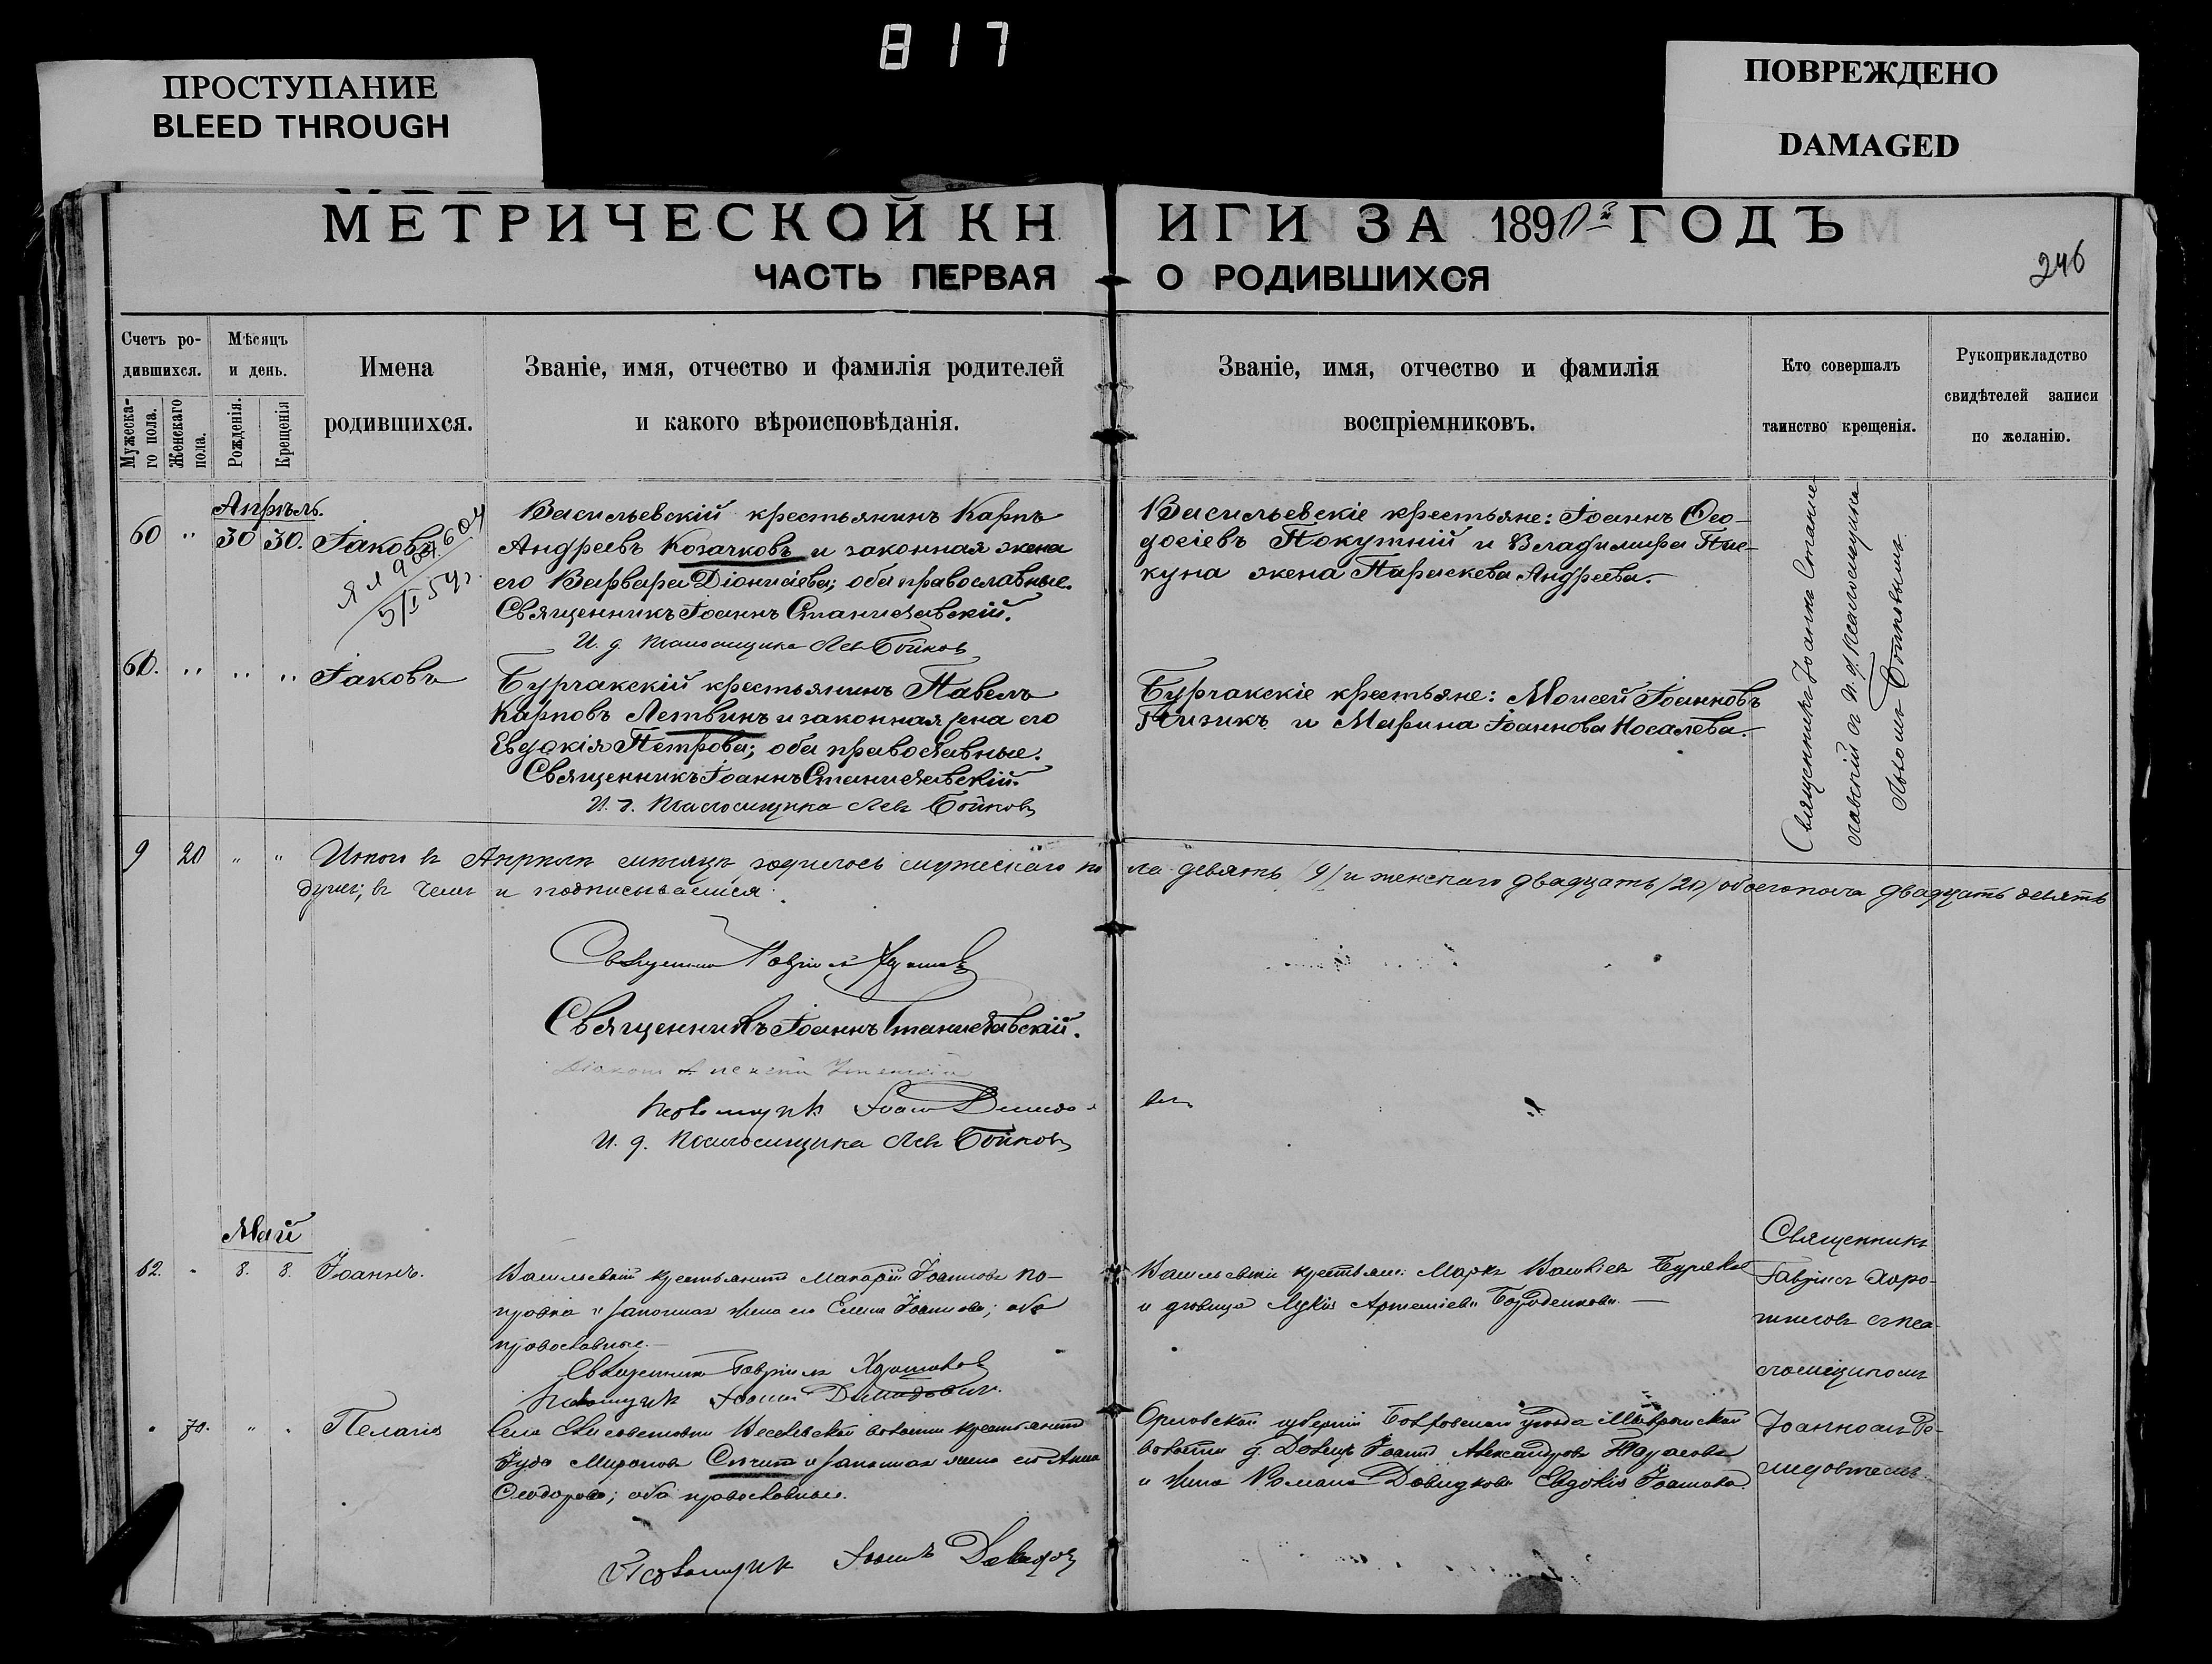 817
ПРОСТУПАНИЕ
BLEED THROUGH
ПОВРЕЖДЕНО
DAMAGED
МЕТРИЧЕСКОЙ КНИГИ ЗА 189 ГОДЪ
ЧАСТЬ ПЕРВАЯ О РОДИВШИХСЯ
246
Счетъ ро-
дившихся.
Мужеска-
го пола.
Женскаго
пола.
Мѣсяцъ
и день.
Рожденія.
Крещенія
Имена
родившихся.
Званіе, имя, отчество и фамилія родителей
и какого вѣроисповѣданія.
Званіе, имя, отчество и фамилія
воспріемниковъ.
Кто совершалъ
таинство крещенія.
Рукоприкладство
свидѣтелей записи
по желанію.
Апрѣль.
60 " 30 30. Іаковъ
5/I 54г.
Васильевскій крестьянинъ Карпъ
Андреевъ Козачковъ и законная жена
его Варвара Діонисіева; оба православные.
Священникъ Іоаннъ Станиславскій.
И. д. псаломщика Левъ Бойковъ
Васильевскіе крестьяне: Іоаннъ Ѳео-
досіевъ Покутній и Владиміра
жена Параскева Андреева.
Священникъ Іоаннъ Станис-
лавскій съ и. д. псаломщика
Львомъ Бойковымъ.
61. " " " Іаковъ
Бурчакскій крестьянинъ Павелъ
Карповъ Летвинъ и законная жена его
Евдокія Петрова; оба православные.
Священникъ Іоаннъ Станиславскій.
И. д. псаломщика Левъ Бойковъ
Бурчакскіе крестьяне: Моисей Іоанновъ
и Марина Іоаннова Косалева.
9 20 " " Итого въ Апрѣлѣ мѣсяцѣ родилось мужескаго пола девять /9/ и женскаго двадцать /20/ обоего пола двадцать девять
душъ; въ чемъ и подписываемся:
Священникъ Гавріилъ
Священникъ Іоаннъ Станиславскій.
Діаконъ Алексій
Псаломщикъ Іоаннъ
И. д. псаломщика Левъ Бойковъ
Май
62. " 8. 8. Іоаннъ.
Васильевскій крестьянинъ Макарій Іоанновъ
и законная жена его Елена Іоаннова; оба
православные.
Священникъ Гавріилъ
Псаломщикъ Іоаннъ
Васильевскіе крестьяне: Маркъ
и дѣвица Лукія Артеміева Бороденкова.
Священникъ
Гавріилъ Харо-
съ пса-
ломщикомъ
" 70. " " Пелагія
Села Веселовской волости крестьянинъ
Іуда Мироновъ и законная жена его Анна
Ѳеодорова; оба православные.
Псаломщикъ Іоаннъ
Орловской губерніи уѣзда
волости д. Іоаннъ Александровъ
и жена Романа Давидкова Евдокія Іоаннова.
Іоанномъ